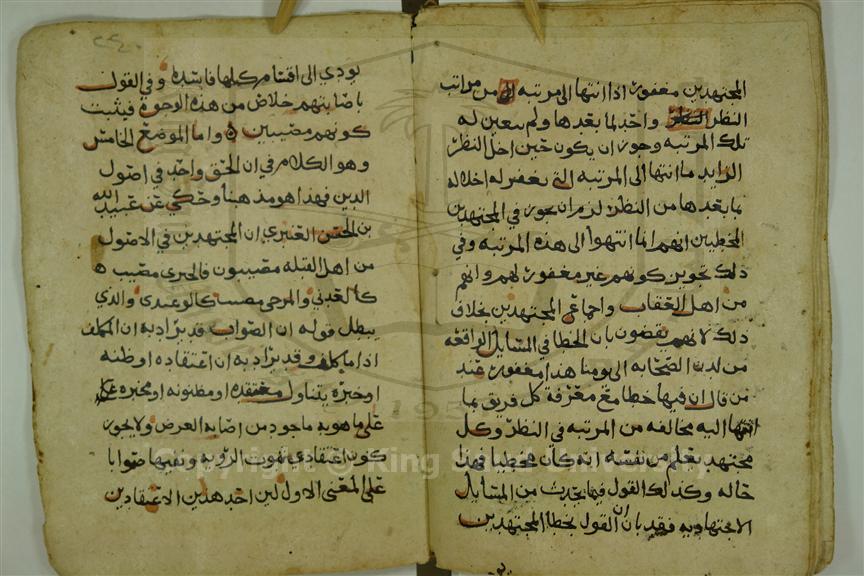 المجتهدين مغفور اذا انتها الى مرتبه من مراتب
النظر واخل لما بعدها ولم يتعين له
تلك المرتبه وجوز ان يكون حين اخل النظر
الزايد ما انتها الى المرتبه التي يغفر له اخلاله
بما بعدها من النظر لزم ان يجوز في المجتهدين
المخطيين انهم اما انتهوا الى هذه المرتبه وفي
ذلك تجويز كونهم غير مغفور لهم وانهم
من اهل العقاب واجماع المجتهدين بخلاف
ذلك لانهم يقضون بان الخطا في المسايل الواقعه
من لدن الصحابه الى يومنا هذا مغفور عند
من قال ان فيها خطا مع معرفة كل فريق بما
انتها اليه مخالفه من المرتبه في النظر وكل
مجتهد يعلم من نفسه انه كان مخطيا فهذا
حاله وكذلك القول فيما يحدث من المسايل
الاجتهاديه فقد بان ان القول بخطا المجتهدين
يودي الى اقسام كلها فاسده وفي القول
باصابتهم خلاص من هذه الوجوه فيثبت
كونهم مصيبين واما الموضع الخامس
وهو الكلام في ان الحق واحد في اصول
الدين فهذا هو مذهبنا وحكي عن عبيد الله
بن الحسن العنبري ان المجتهدين في الاصول
من اهل القبله مصيبون فالجبري مصيب
كالعدلي والمرجي مصيب كالوعيدي والذي
يبطل قوله ان الصواب قد يراد به ان المكلف
اذا ما كلف وقد يراد به ان اعتقاده او ظنه
او خبره يتناول معتقده او مظنونه او مخبره
على ما هو به ماخوذ من اصابه الغرض ولا يجوز
كون اعتقادي ثبوت الرويه ونفيها صوابا
على المعنى الاول لان احد هذين الاعتقادين
Copyright © King Saud University
1957